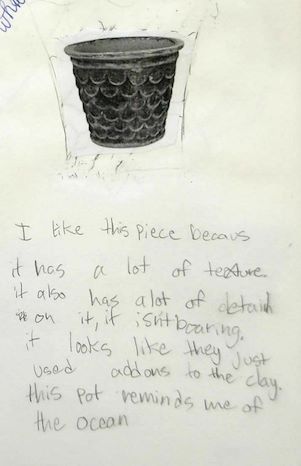 I like this piece becaus
it has a lot of texture.
it also has alot of detail
on it, it isnt boaring.
it looks like they just
used addons to the clay.
this pot reminds me of
the ocean